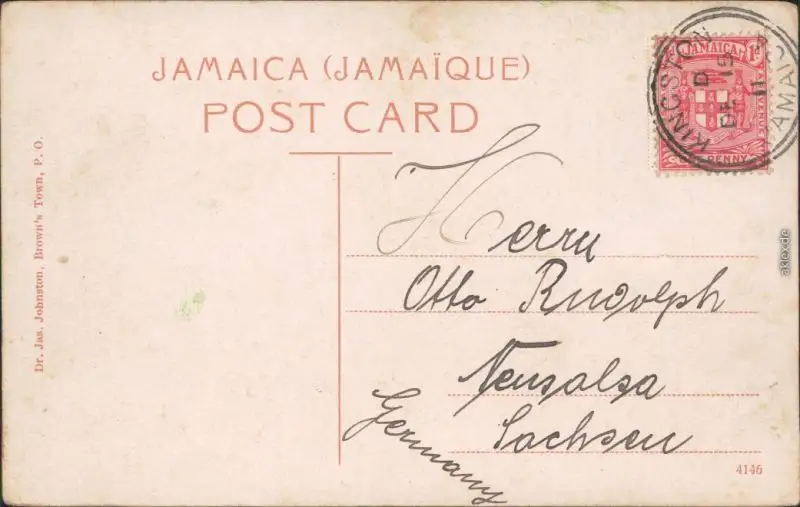 JAMAICA (JAMAÏQUE)
POST CARD
KINGSTON
JAMAICA
DE 19
11
JAMAICA 1D
PENNY
Dr. Jas. Johnston, Brown's Town, P. O.
Herrn
Otto Rudolph
Neusalsa
Sachsen
Germany
4146
akpool.de